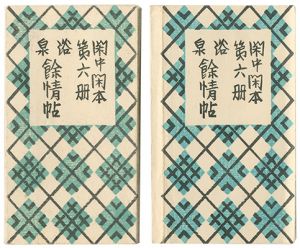 閑中閑本
第六册
浴泉餘情帖
閑中閑本
第六册
浴泉餘情帖